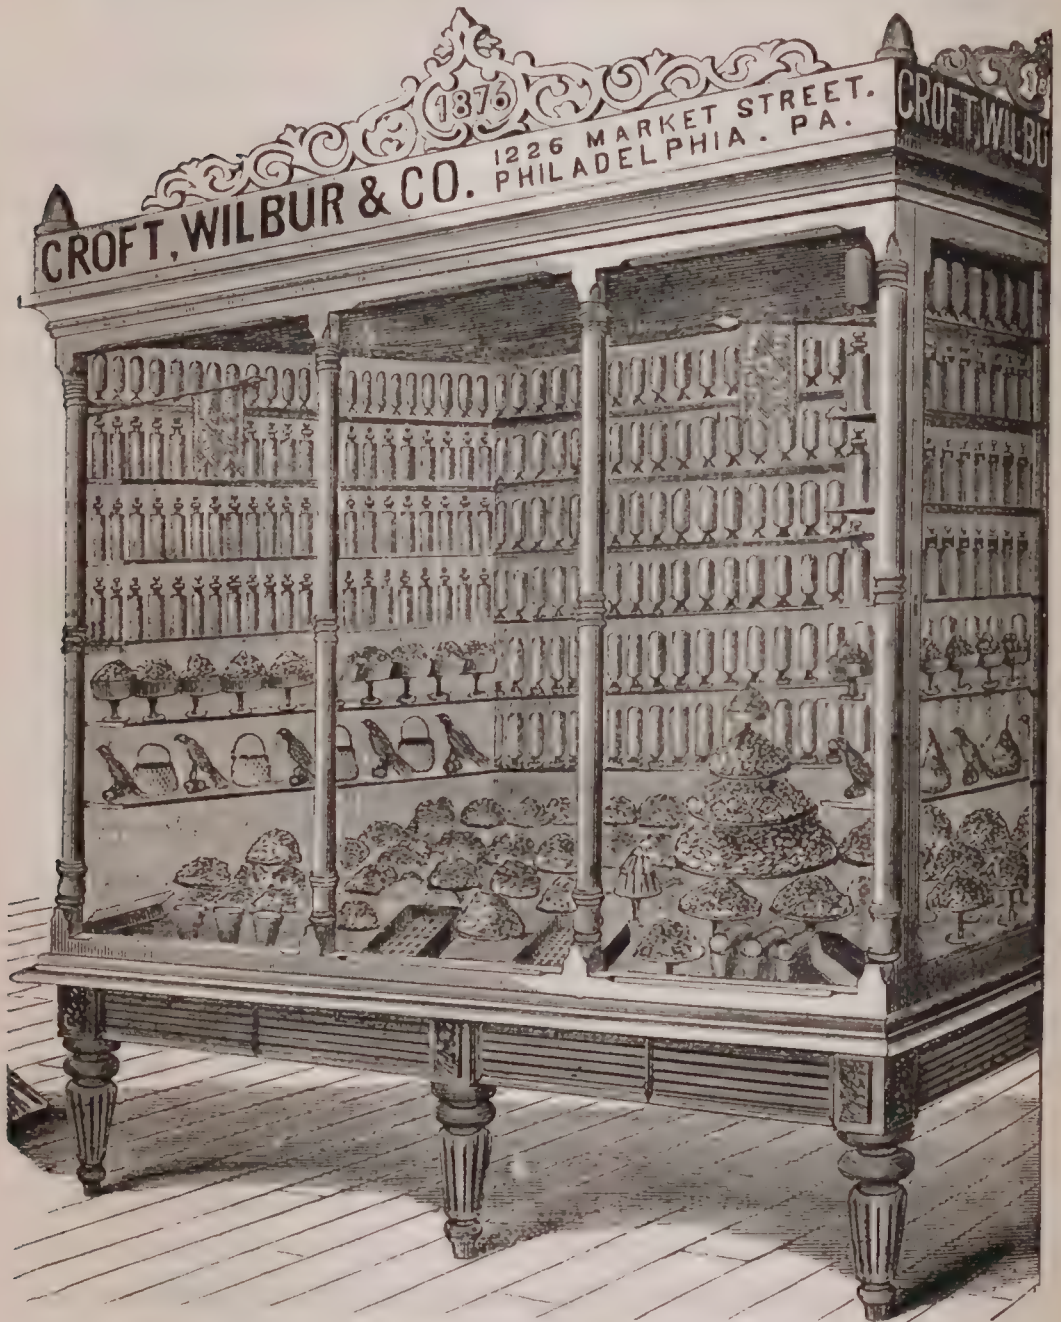 1876
CROFT, WILBUR & CO. 1226 MARKET STREET.
PHILADELPHIA. PA.
CROFT, WILBU